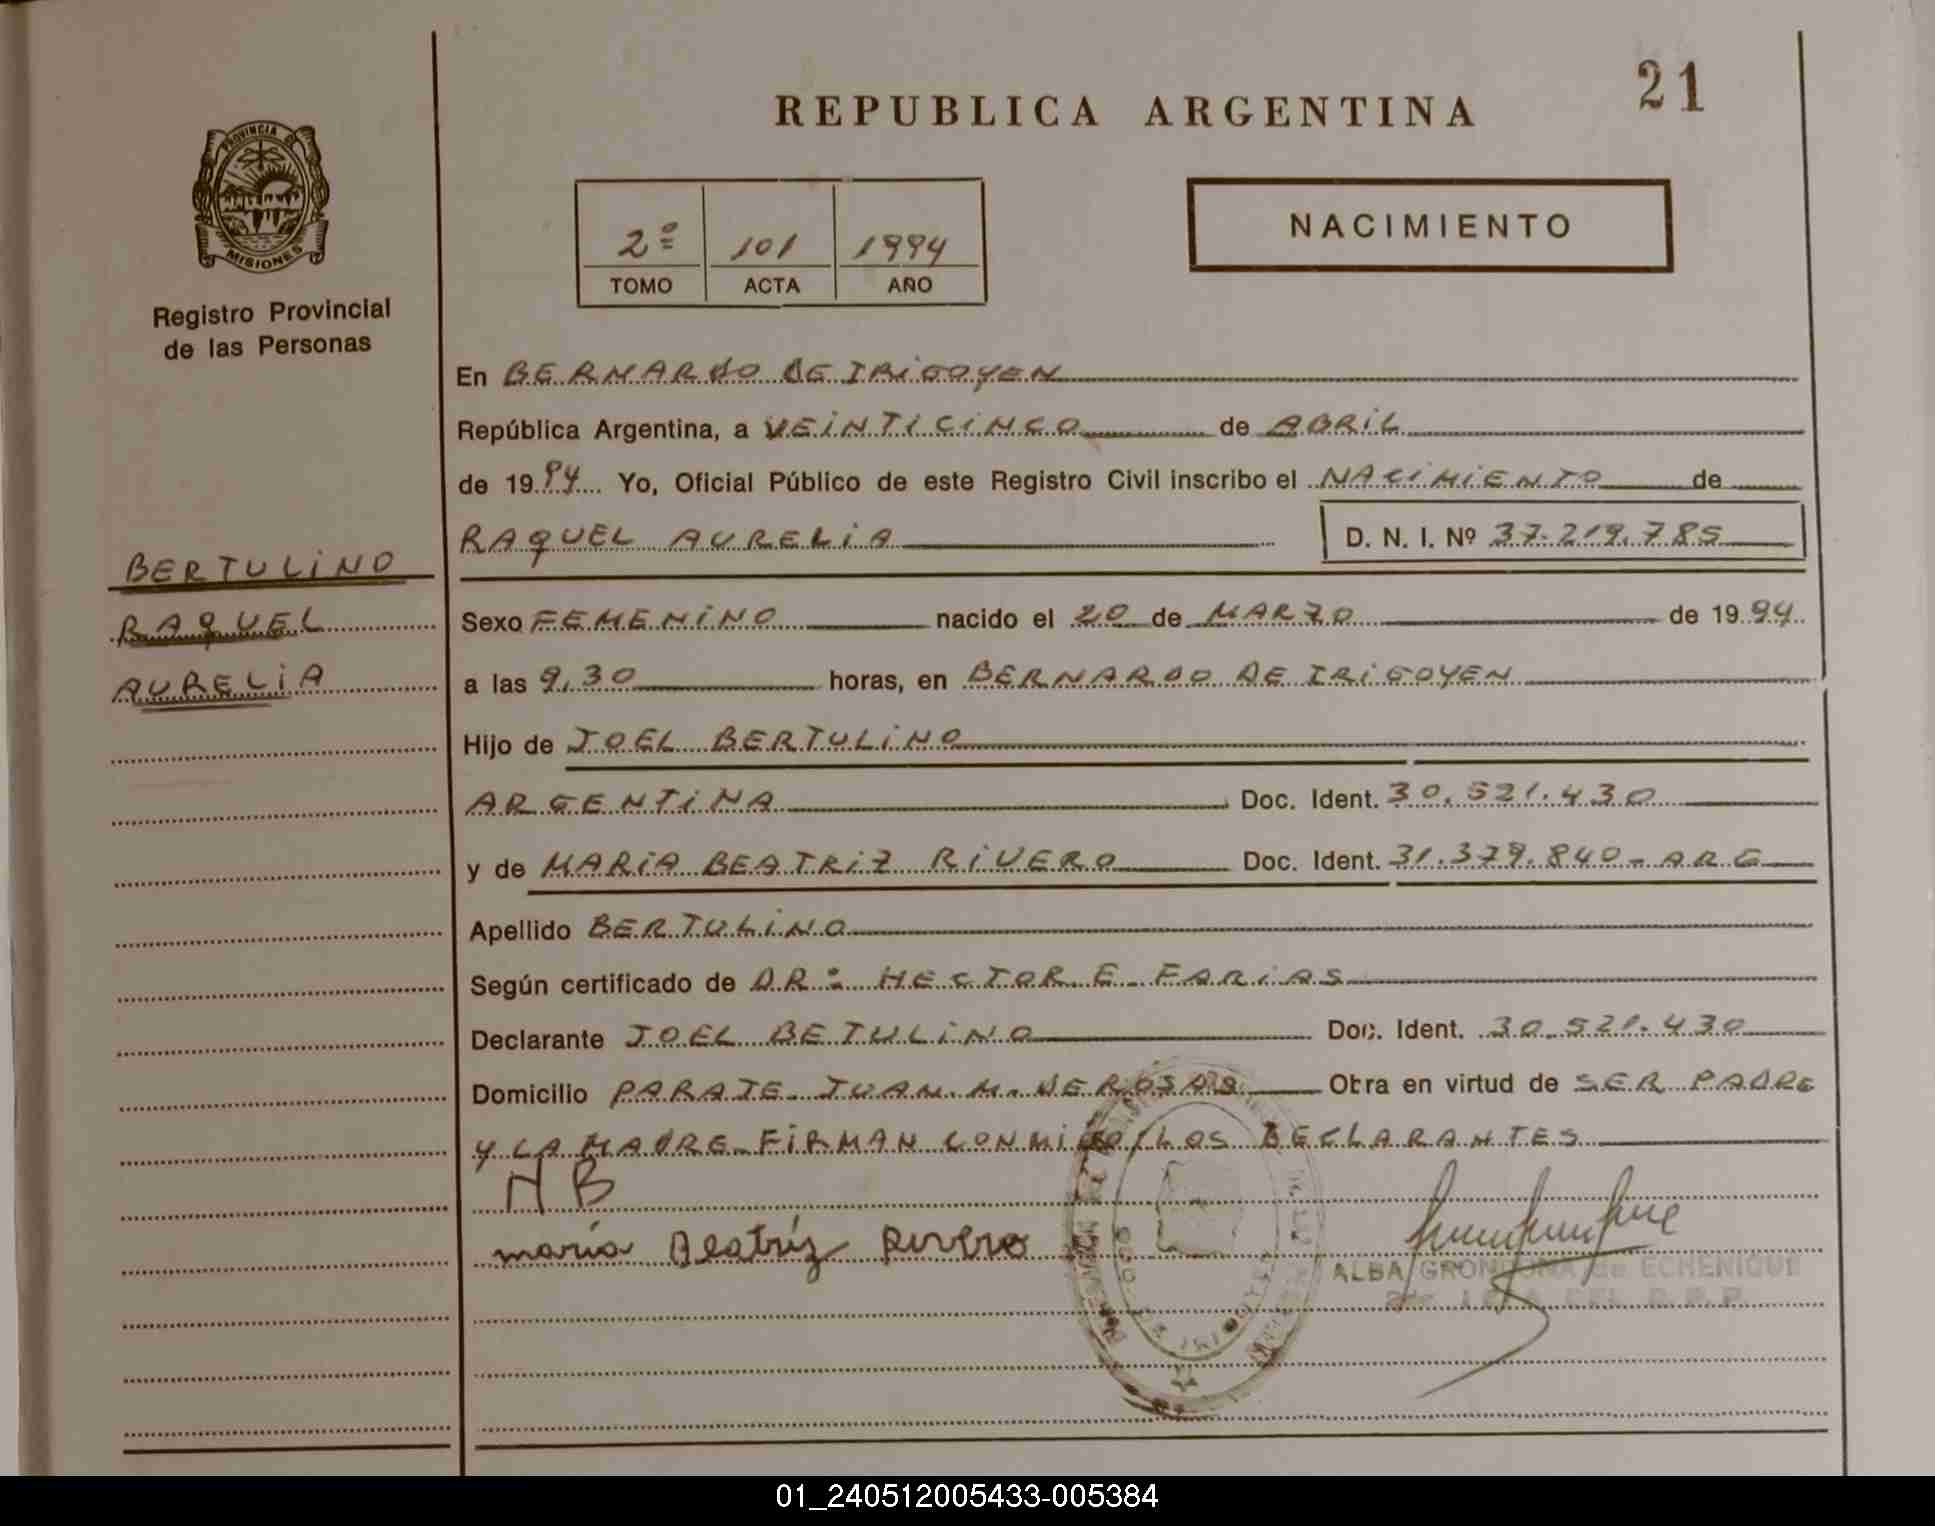 REPUBLICA ARGENTINA
21
PROVINCIA DE
MISIONES
Registro Provincial
de las Personas
2º 101 1994
TOMO ACTA AÑO
NACIMIENTO
En BERNARDO DE IRIGOYEN
República Argentina, a VEINTICINCO de ABRIL
de 1994 Yo, Oficial Público de este Registro Civil inscribo el NACIMIENTO de
RAQUEL AURELIA D. N. I. Nº 37.219.785
BERTULINO
RAQUEL
AURELIA
Sexo FEMENINO nacido el 20 de MARZO de 1994
a las 9,30 horas, en BERNARDO DE IRIGOYEN
Hijo de JOEL BERTULINO
ARGENTINA Doc. Ident. 30.521.430
y de MARIA BEATRIZ RIVERO Doc. Ident. 31.379.840-ARG
Apellido BERTULINO
Según certificado de DR: HECTOR E. FARIAS
Declarante JOEL BETULINO Doc. Ident. 30.521.430
Domicilio PARAJE JUAN M. DE ROSAS Obra en virtud de SER PADRE
Y LA MADRE-FIRMAN CONMIGO/LOS DECLARANTES
María Beatríz Rivero
ALBA GRONDONA de ECHENIQUE
01_240512005433-005384